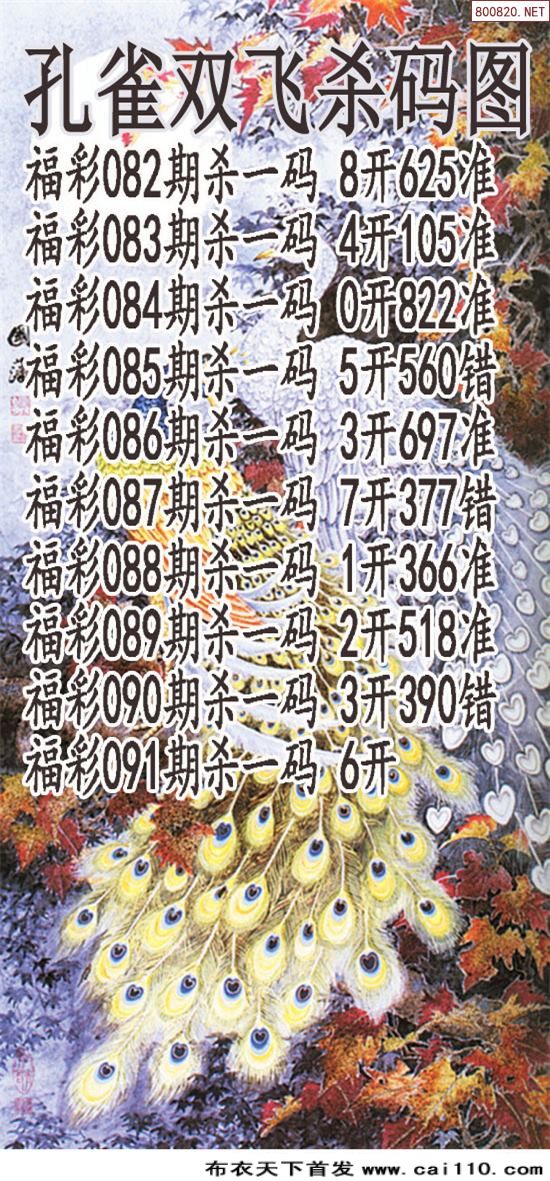 800820.NET
孔雀双飞杀码图
福彩082期杀一码 8开625准
福彩083期杀一码 4开105准
福彩084期杀一码 0开822准
福彩085期杀一码 5开560错
福彩086期杀一码 3开697准
福彩087期杀一码 7开377错
福彩088期杀一码 1开366准
福彩089期杀一码 2开518准
福彩090期杀一码 3开390错
福彩091期杀一码 6开
布衣天下首发 www.cai110.com